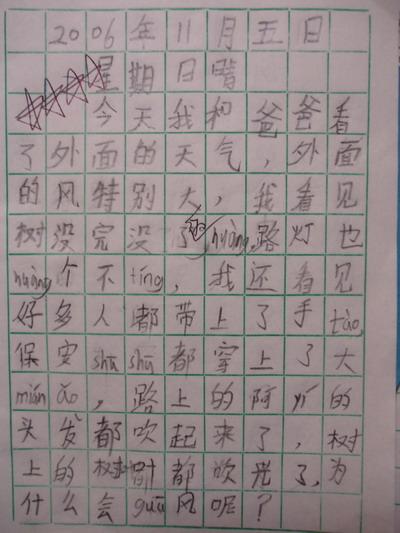 2006年11月五日
星期日晴
今天我和爸爸看
了外面的天气，外面
的风特别大，我看见
树没完没了的huàng，路灯也
huàng个不tíng，我还看见
好多人都带上了手tào，
保安shū shū都穿上了大
mián ǎo，路上的阿yí的
头发都吹起来了，树
上的树叶都吹光了，为
什么会guā风呢？